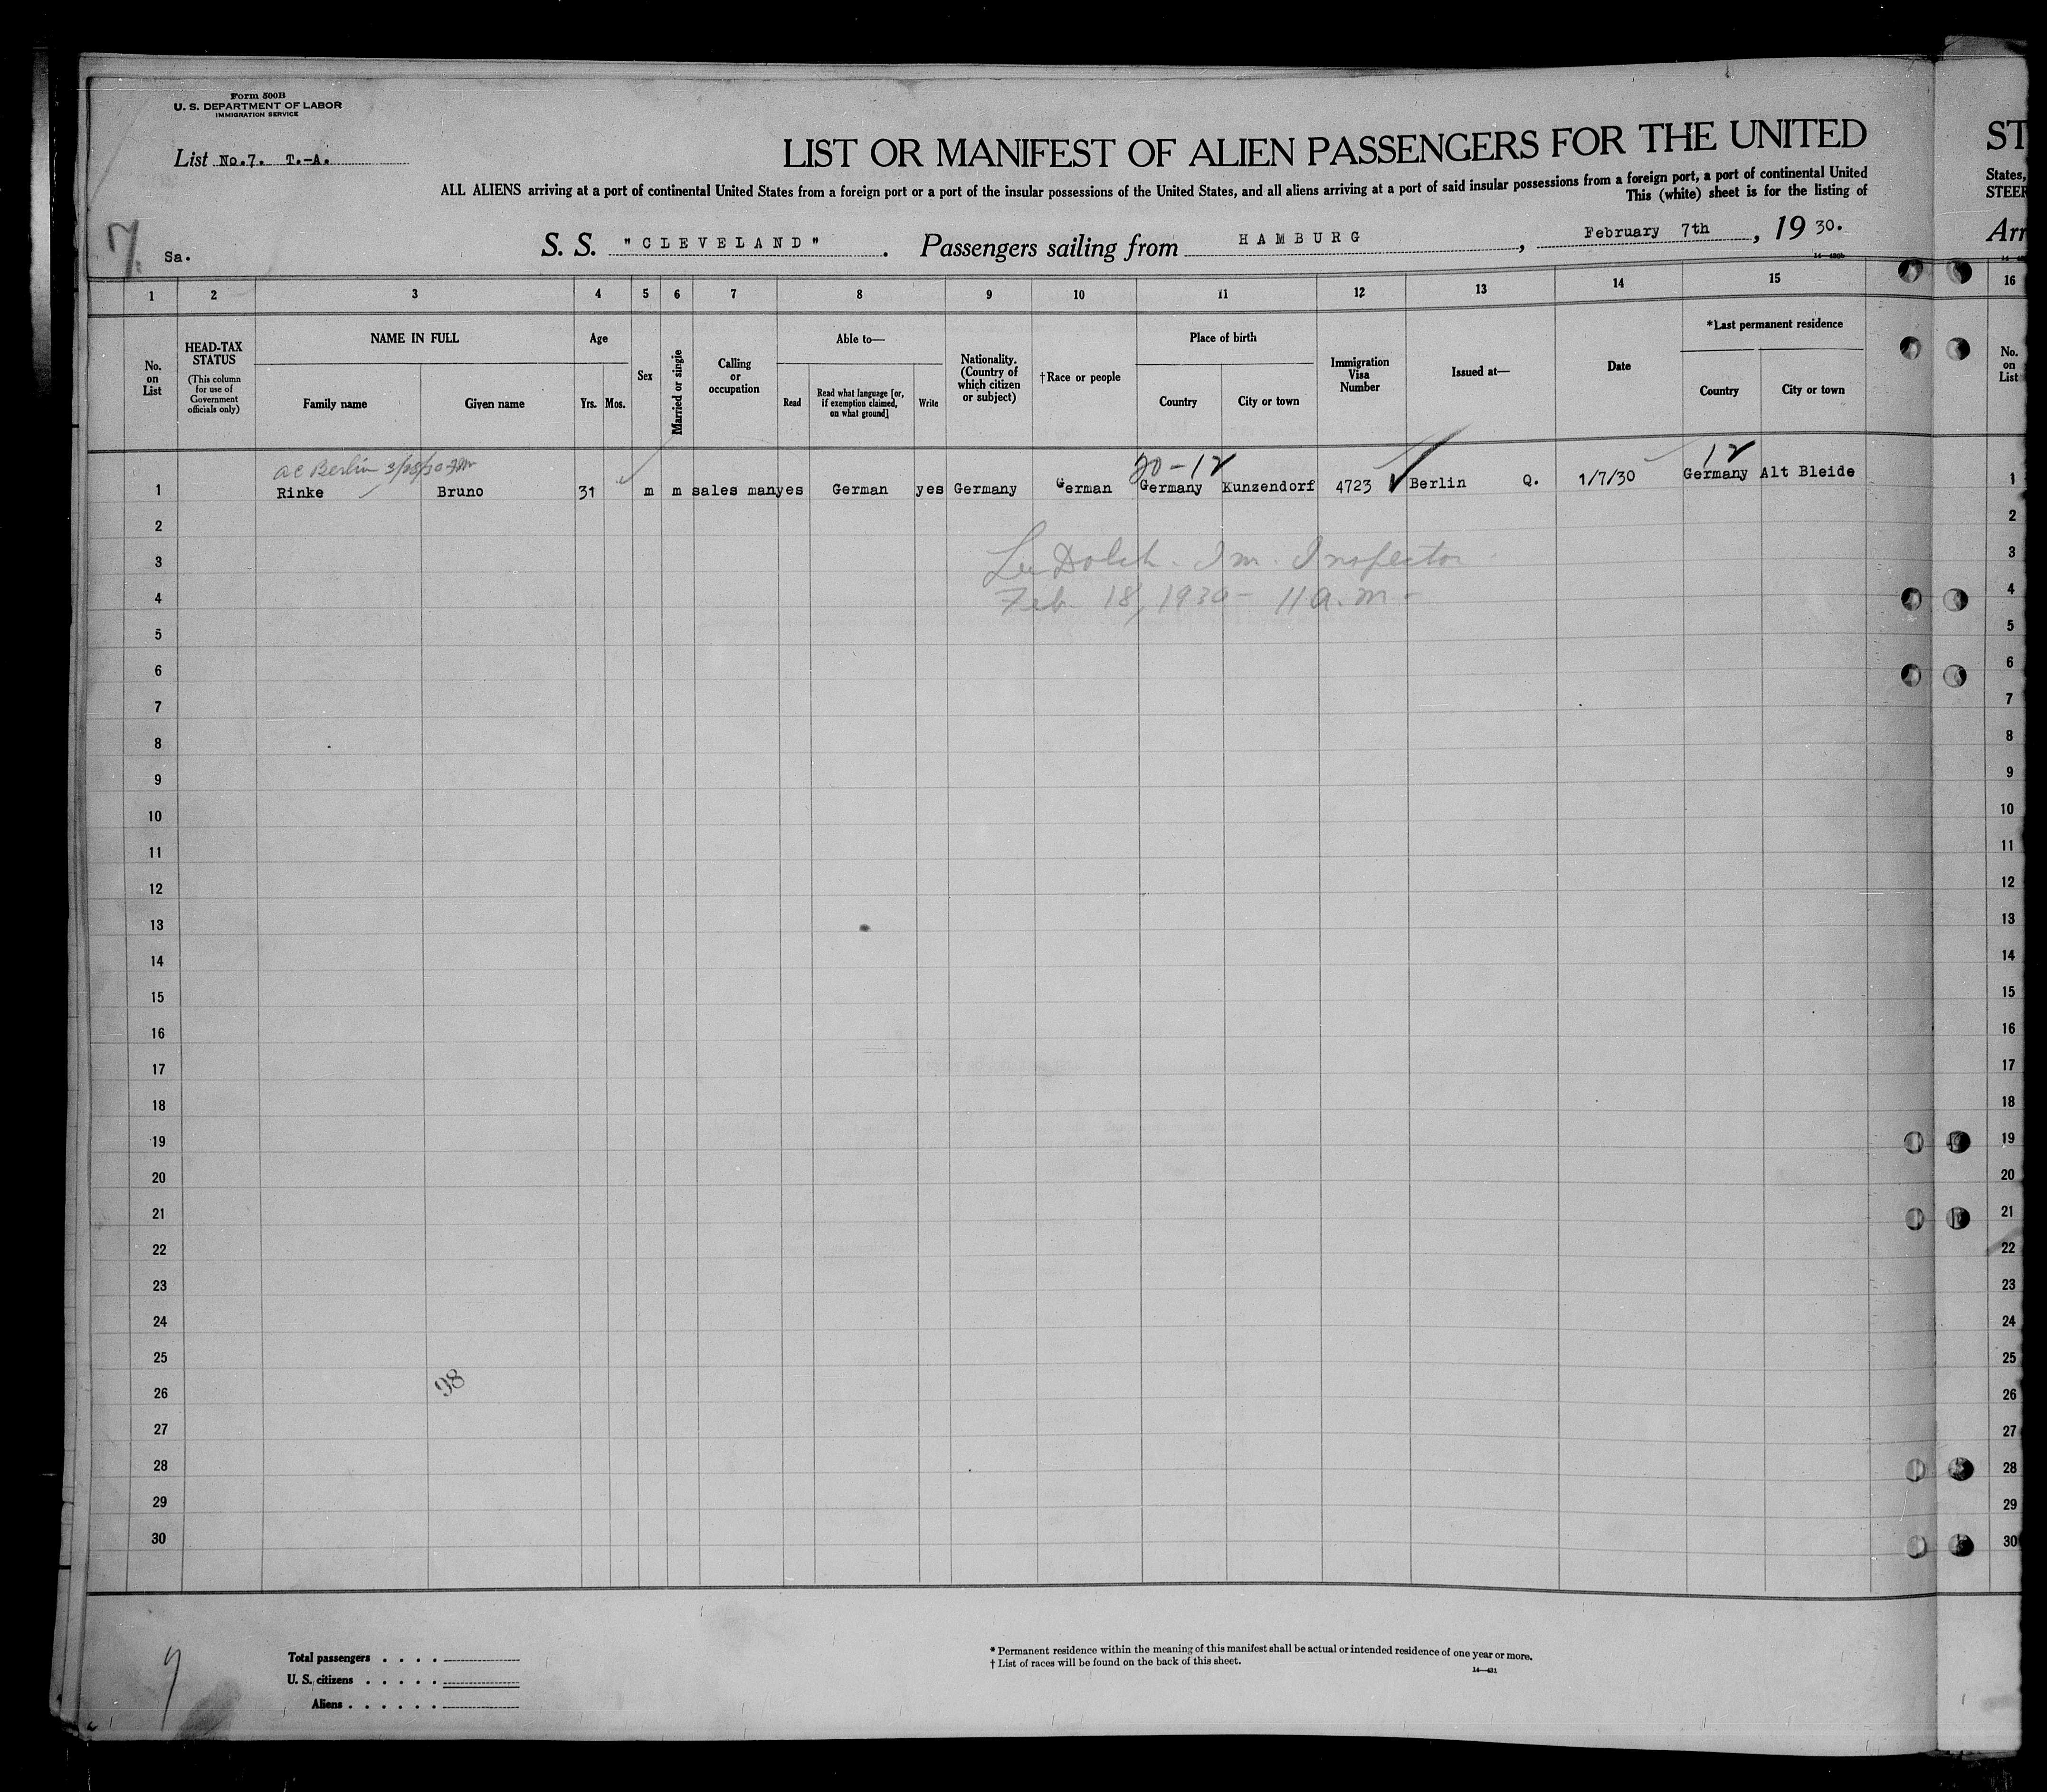 Form 500B
U. S. DEPARTMENT OF LABOR
IMMIGRATION SERVICE
List No.7. T.-A.
LIST OR MANIFEST OF ALIEN PASSENGERS FOR THE UNITED
ST
ALL ALIENS arriving at a port of continental United States from a foreign port or a port of the insular possessions of the United States, and all aliens arriving at a port of said insular possessions from a foreign port, a port of continental United
States,
This (white) sheet is for the listing of
STEER
7.
Sa.
S. S. "CLEVELAND". Passengers sailing from HAMBURG, February 7th, 19 30.
Arr
1 2 3 4 5 6 7 8 9 10 11 12 13 14 15
16
No. on List
HEAD-TAX STATUS
(This column for use of Government officials only)
NAME IN FULL
Family name
Given name
Age
Yrs. Mos.
Sex
Married or single
Calling or occupation
Able to—
Read
Read what language [or, if exemption claimed, on what ground]
Write
Nationality. (Country of which citizen or subject)
†Race or people
Place of birth
Country
City or town
Immigration Visa Number
Issued at—
Date
*Last permanent residence
Country
City or town
No. on List
Berlin 3/28/30
20-12
12
1 Rinke Bruno 31 m m sales man yes German yes Germany German Germany Kunzendorf 4723 Berlin Q. 1/7/30 Germany Alt Bleide
1
2
2
3
Im. Inspector
3
4
Feb. 18, 1930 - 11 a.m.
4
5
5
6
6
7
7
8
8
9
9
10
10
11
11
12
12
13
13
14
14
15
15
16
16
17
17
18
18
19
19
20
20
21
21
22
22
23
23
24
24
25
25
98
26
26
27
27
28
28
29
29
30
30
Total passengers . . . .
U. S. citizens . . . . .
Aliens . . . . . .
* Permanent residence within the meaning of this manifest shall be actual or intended residence of one year or more.
† List of races will be found on the back of this sheet.
14—431